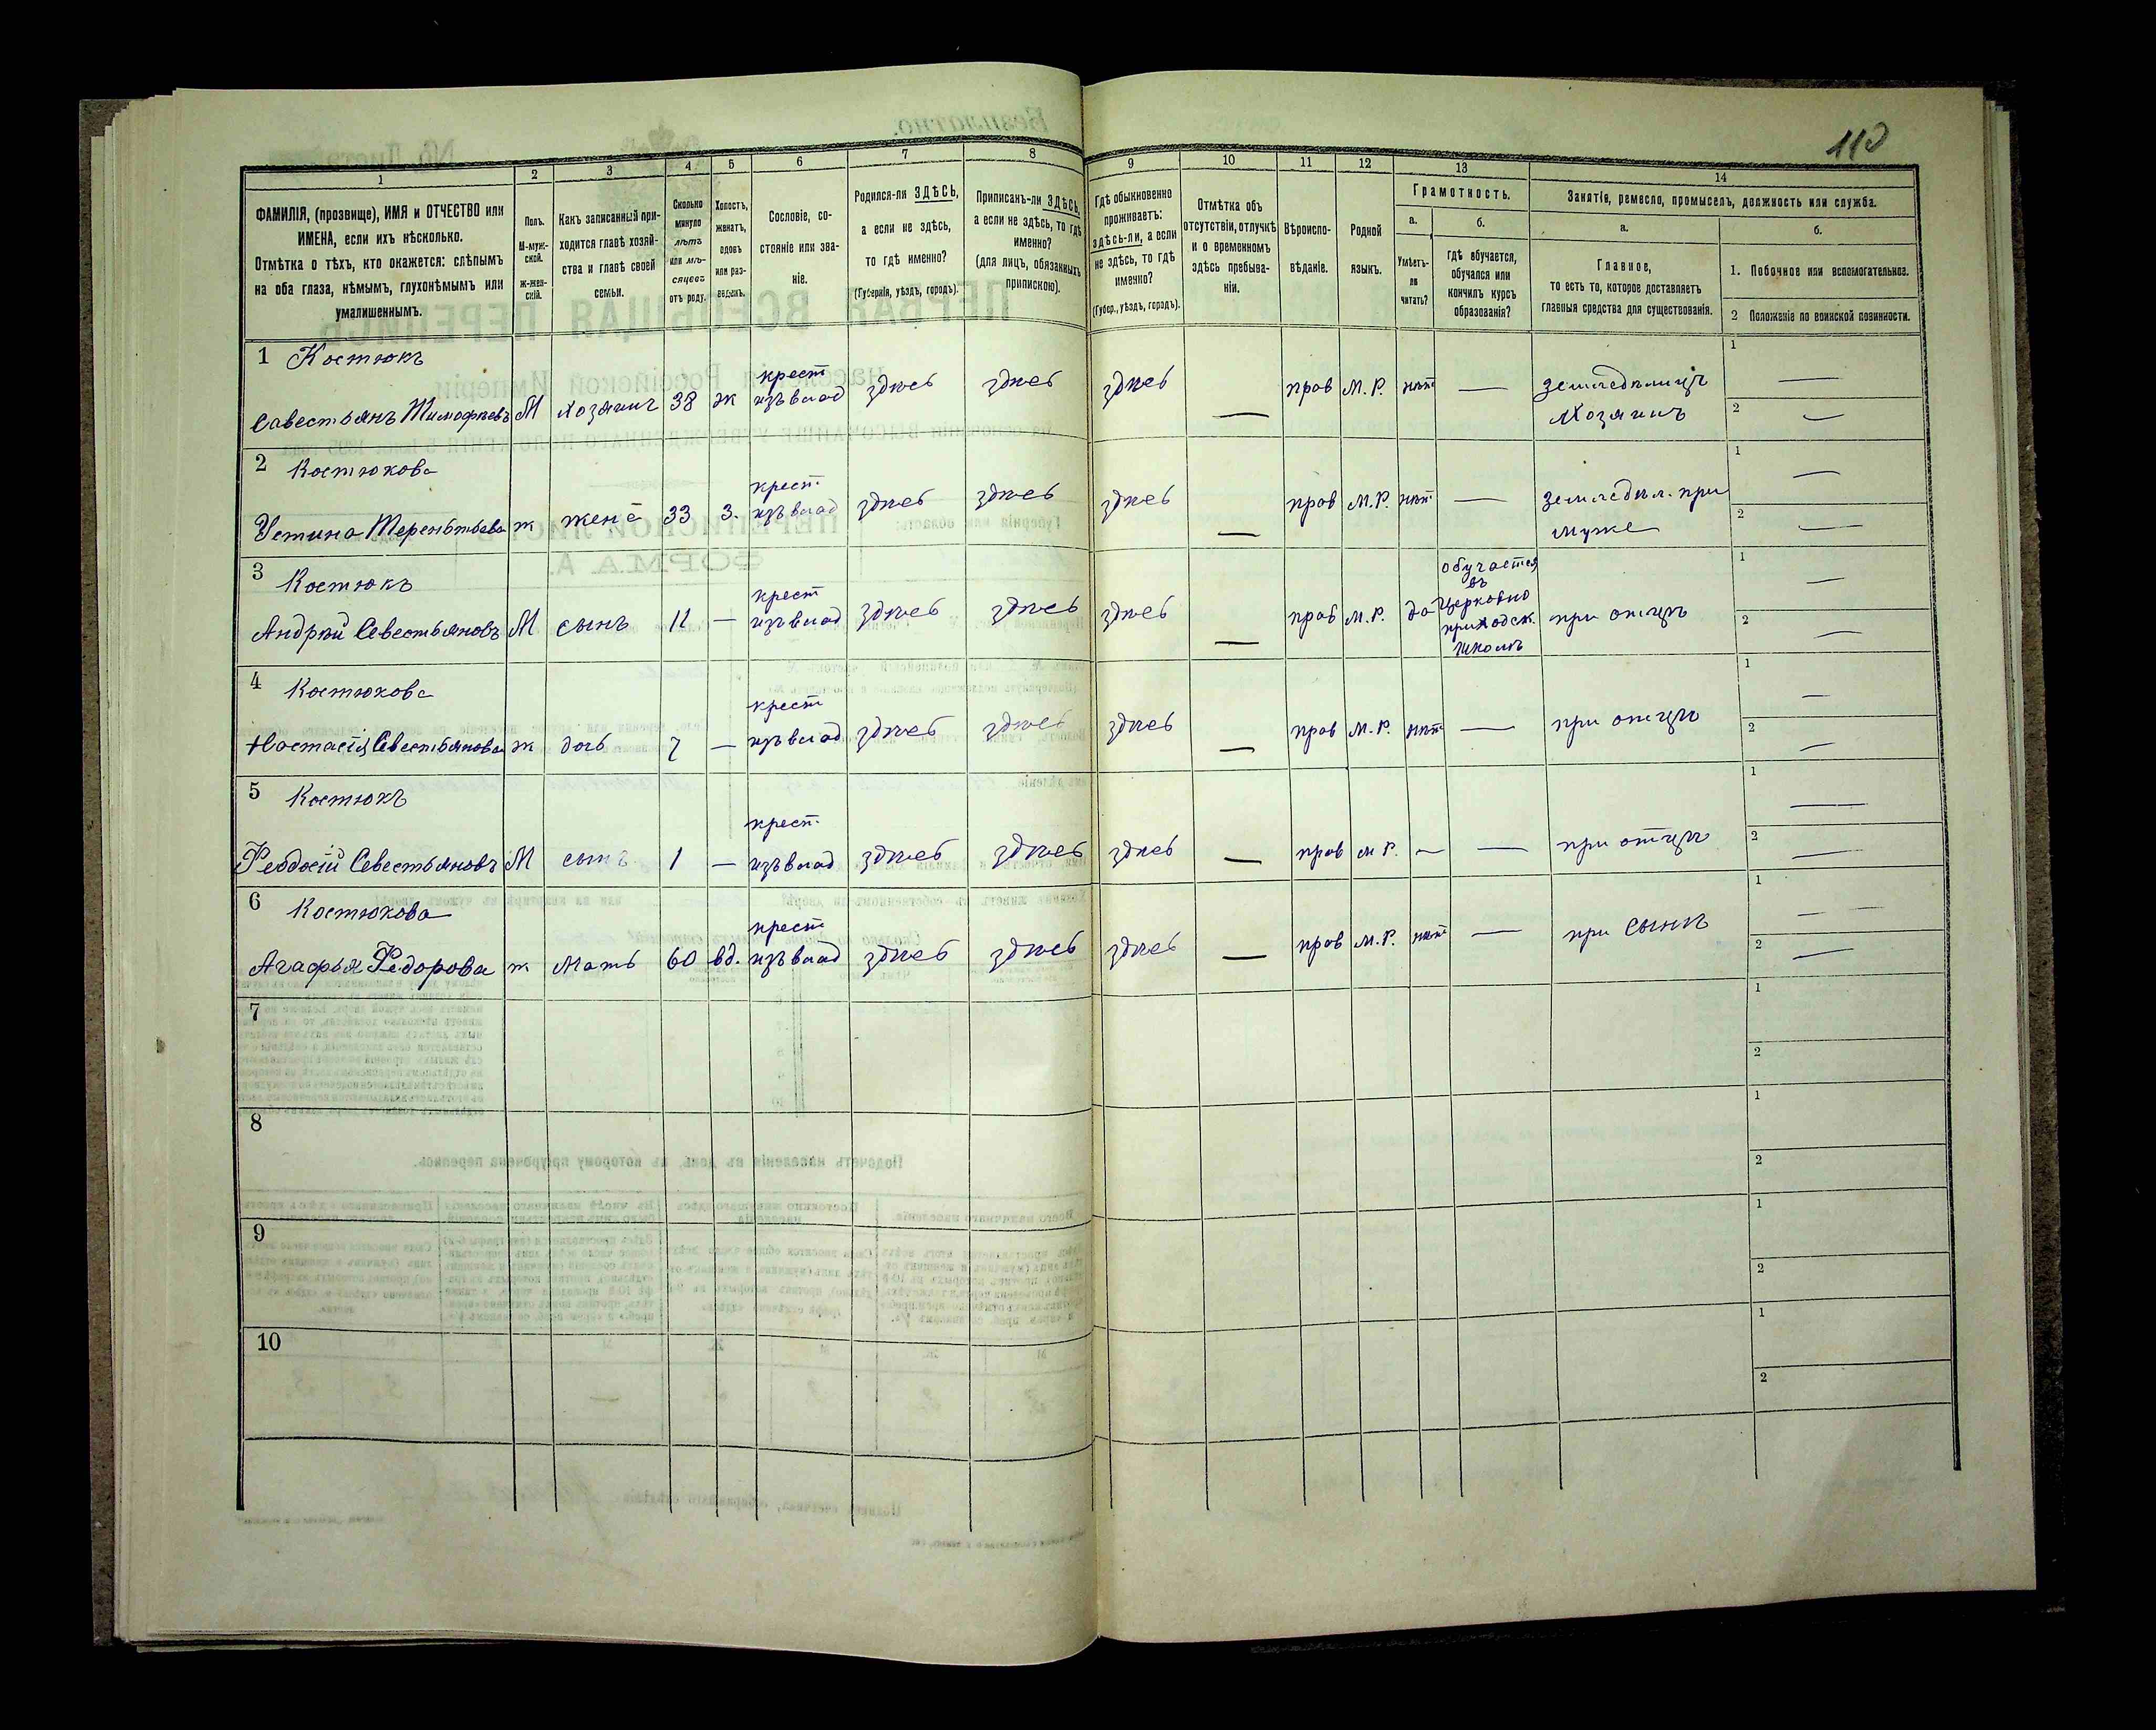 110
1 2 3 4 5 6 7 8 9 10 11 12 13 14
ФАМИЛІЯ, (прозвище), ИМЯ и ОТЧЕСТВО или
ИМЕНА, если ихъ нѣсколько.
Отмѣтка о тѣхъ, кто окажется: слѣпымъ
на оба глаза, нѣмымъ, глухонѣмымъ или
умалишеннымъ.
Полъ.
М-муж-
ской.
ж-жен-
скій.
Какъ записанный при-
ходится главѣ хозяй-
ства и главѣ своей
семьи.
Сколько
минуло
лѣтъ
или мѣ-
сяцевъ
отъ роду.
Холостъ,
женатъ,
вдовъ
или раз-
веденъ.
Сословіе, со-
стояніе или зва-
ніе.
Родился-ли ЗДѢСЬ,
а если не здѣсь,
то гдѣ именно?
(Губернія, уѣздъ, городъ).
Приписанъ-ли ЗДѢСЬ,
а если не здѣсь, то гдѣ
именно?
(для лицъ, обязанныхъ
припискою).
Гдѣ обыкновенно
проживаетъ:
здѣсь-ли, а если
не здѣсь, то гдѣ
именно?
(Губер., уѣздъ, городъ).
Отмѣтка объ
отсутствіи, отлучкѣ
и о временномъ
здѣсь пребыва-
ніи.
Вѣроиспо-
вѣданіе.
Родной
языкъ.
Грамотность.
а.
Умѣетъ-
ли
читать?
б.
гдѣ обучается,
обучался или
кончилъ курсъ
образованія?
Занятія, ремесло, промыселъ, должность или служба.
а.
Главное,
то есть то, которое доставляетъ
главныя средства для существованія.
б.
1. Побочное или вспомогательное.
2 Положеніе по воинской повинности.
1 Костюкъ
Савестьянъ Тимофѣевъ М хозяинъ 38 ж крест изъ влад здѣсь здѣсь здѣсь — прав М.Р. нѣт — земледѣлецъ Хозяинъ 1 — 2 —
2 Костюкова
Устина Терентьева ж жена 33 з. крест. изъ влад здѣсь здѣсь здѣсь — прав М.Р. нѣт — земледѣл. при мужѣ 1 — 2 —
3 Костюкъ
Андрѣй Севестьяновъ М сынъ 11 — крест изъ влад здѣсь здѣсь здѣсь — прав М.Р. да обучается въ Церковно приходск. школѣ при отцѣ 1 — 2 —
4 Костюкова
Настасія Севестьянова ж дочь 7 — крест изъ влад здѣсь здѣсь здѣсь — прав М.Р. нѣт — при отцѣ 1 — 2 —
5 Костюкъ
Феодосій Севестьяновъ М сынъ 1 — крест. изъ влад здѣсь здѣсь здѣсь — прав М Р. — — при отцѣ 1 — 2 —
6 Костюкова
Агафья Федорова ж мать 60 вд. крест изъ влад здѣсь здѣсь здѣсь — прав М.Р. нѣт — при сынѣ 1 — — 2 —
7 1 2
8 1 2
9 1 2
10 1 2